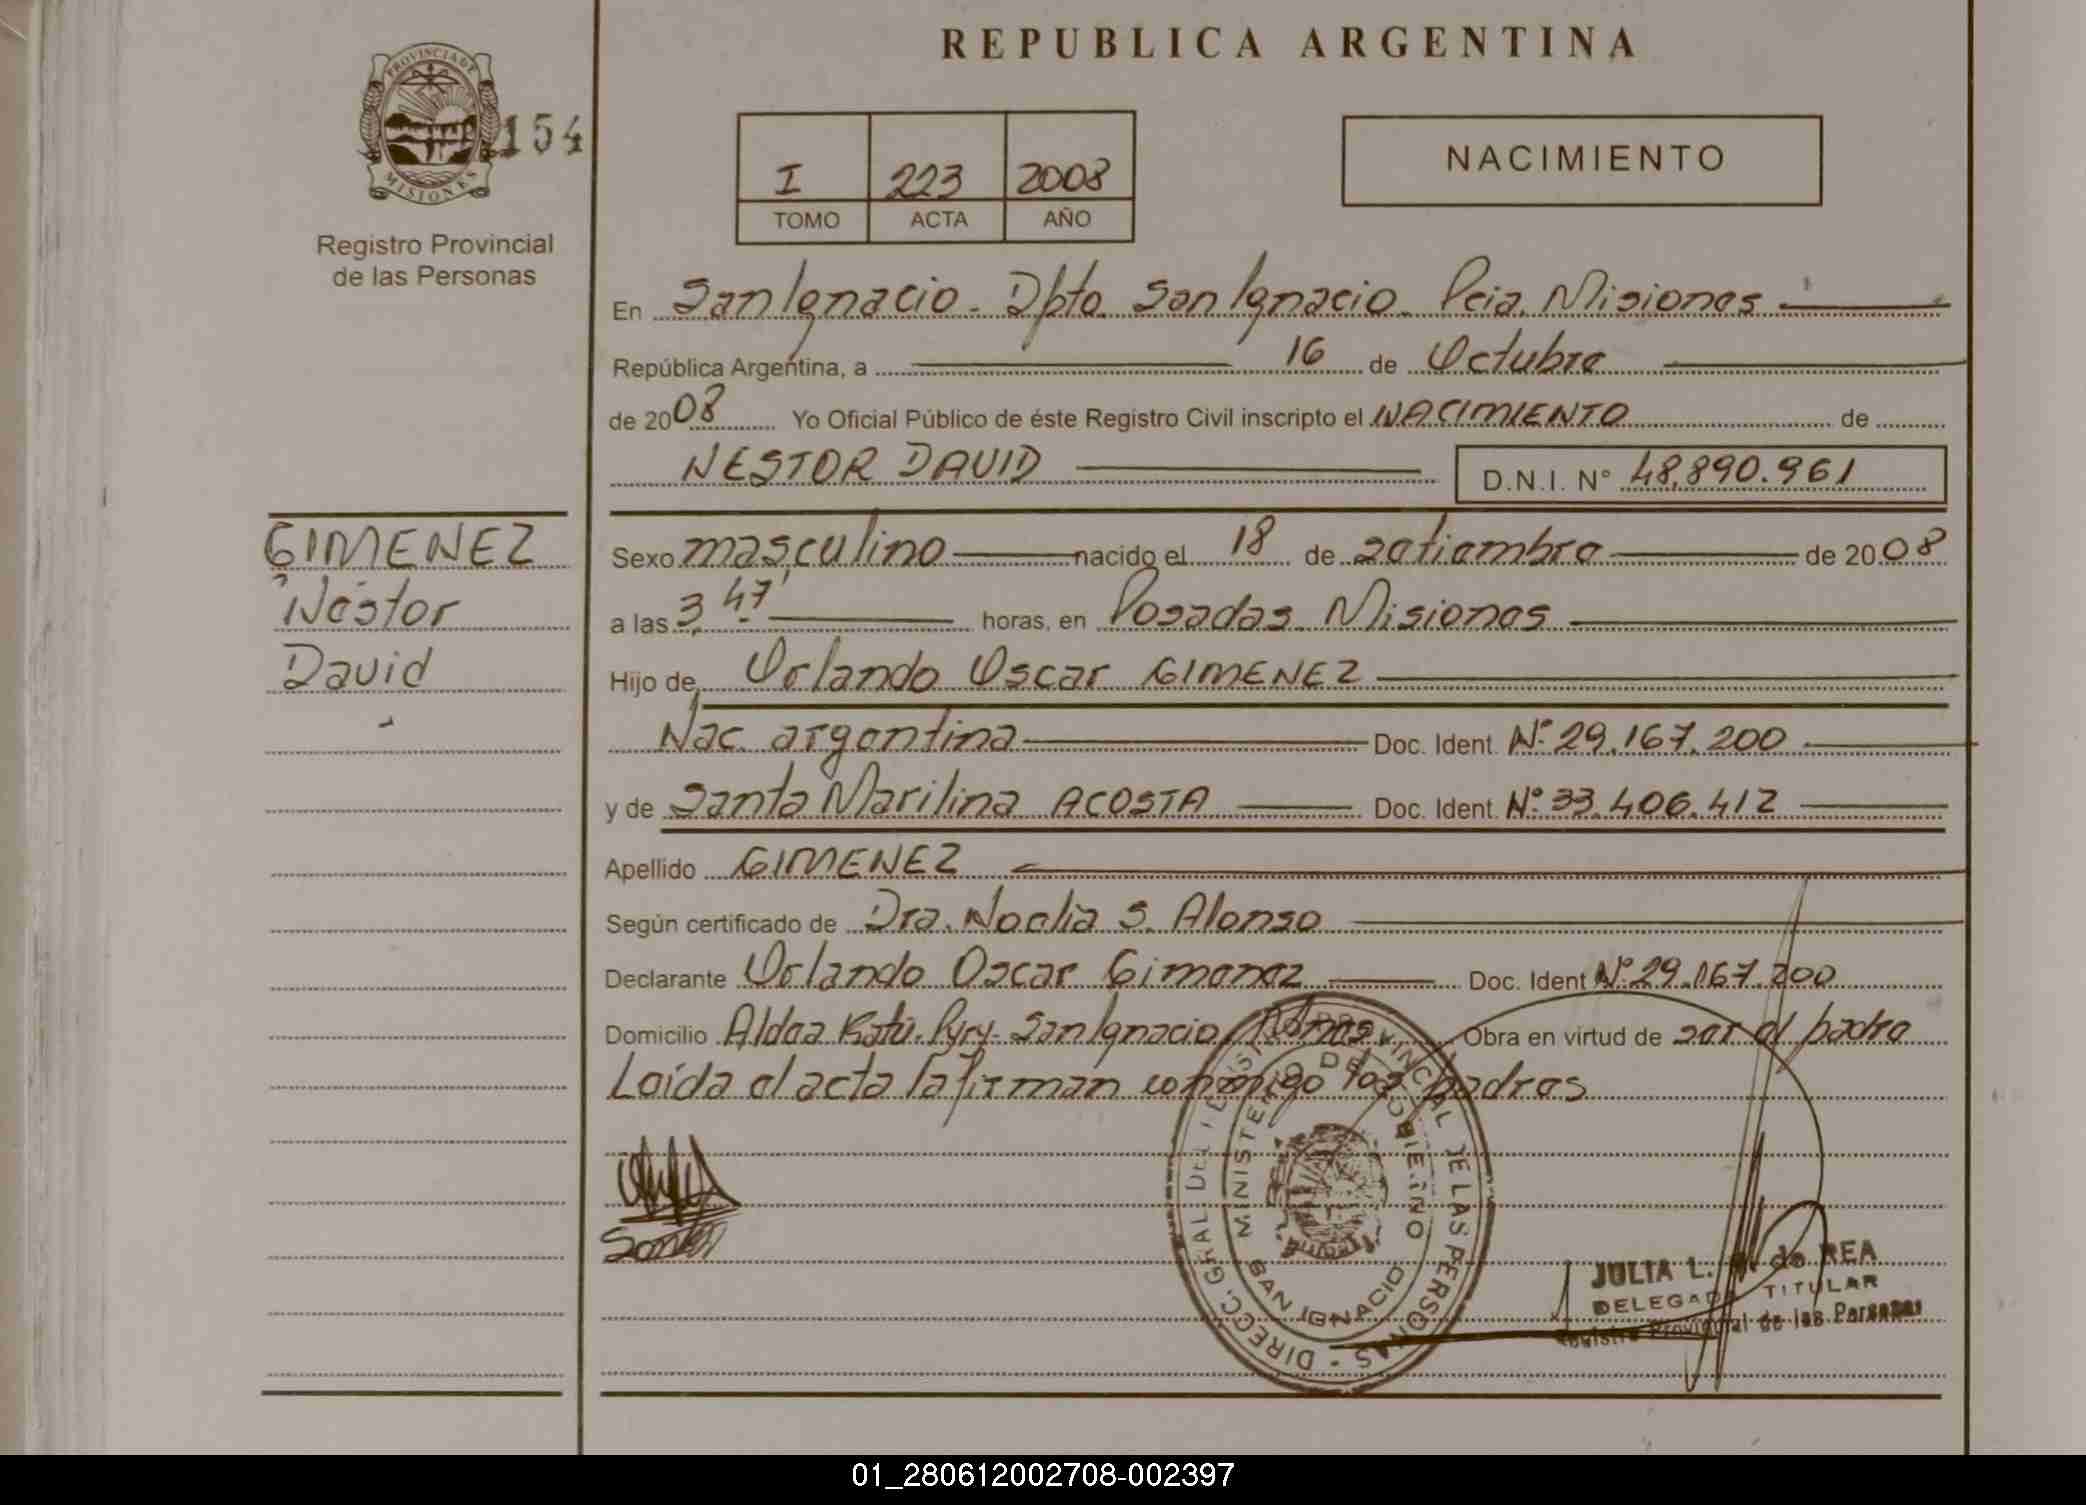 REPUBLICA ARGENTINA
PROVINCIA DE
MISIONES
154
Registro Provincial
de las Personas
I 223 2008
TOMO ACTA AÑO
NACIMIENTO
En San Ignacio - Dpto. San Ignacio. Pcia. Misiones
República Argentina, a 16 de Octubre
de 2008 Yo Oficial Público de éste Registro Civil inscripto el NACIMIENTO de
NESTOR DAVID D.N.I. N° 48.890.961
GIMENEZ
Néstor
David
Sexo masculino nacido el 18 de setiembre de 2008
a las 3,47' horas, en Posadas Misiones
Hijo de Orlando Oscar GIMENEZ
Nac. argentina Doc. Ident. N° 29.167.200
y de Santa Marilina ACOSTA Doc. Ident. N° 33.406.412
Apellido GIMENEZ
Según certificado de Dra. Noelia S. Alonso
Declarante Orlando Oscar Gimenez Doc. Ident N° 29.167.200
Domicilio Aldea Katú-Pyry- San Ignacio, Mnes. Obra en virtud de ser el padre
Leída el acta la firman conmigo los padres
DIRECC. GRAL DEL REGISTRO PROVINCIAL DE LAS PERSONAS
MINISTERIO DE GOBIERNO
SAN IGNACIO
JULIA L. de REA
DELEGADA TITULAR
Registro Provincial de las Personas
01_280612002708-002397